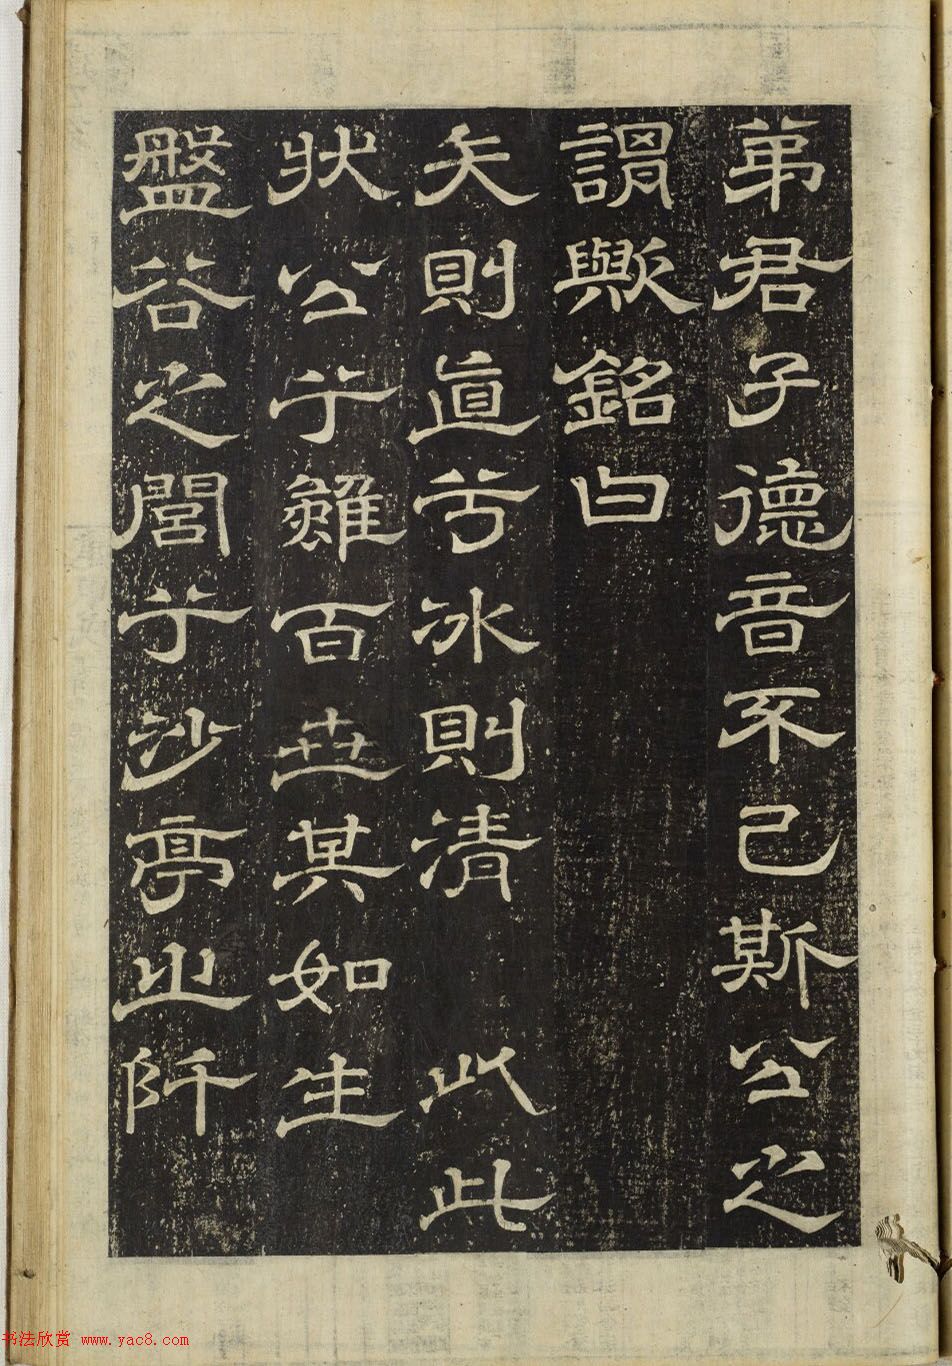 弟君子德音不已斯公之
謂歟銘曰
矢則直兮冰則清 以此
狀公兮雖百世其如生
盤谷之閭兮沙亭之阡
书法欣赏 www.yac8.com